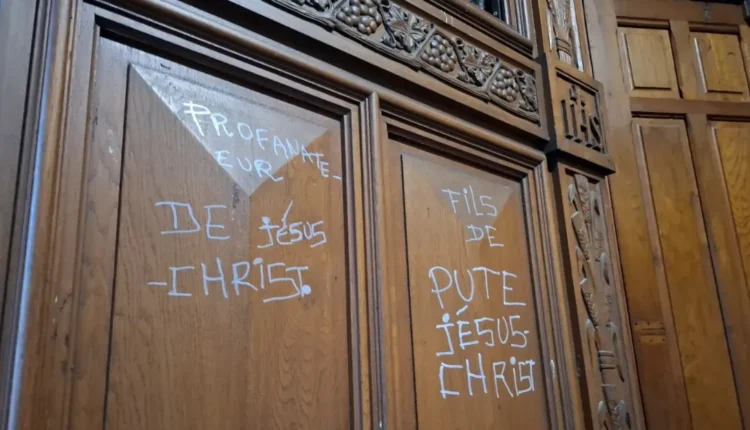 PROFANATE-
EUR
DE jésus
-CHRiST.
FiLS
DE
PUTE
jÉSUS-
CHRiST
iHS